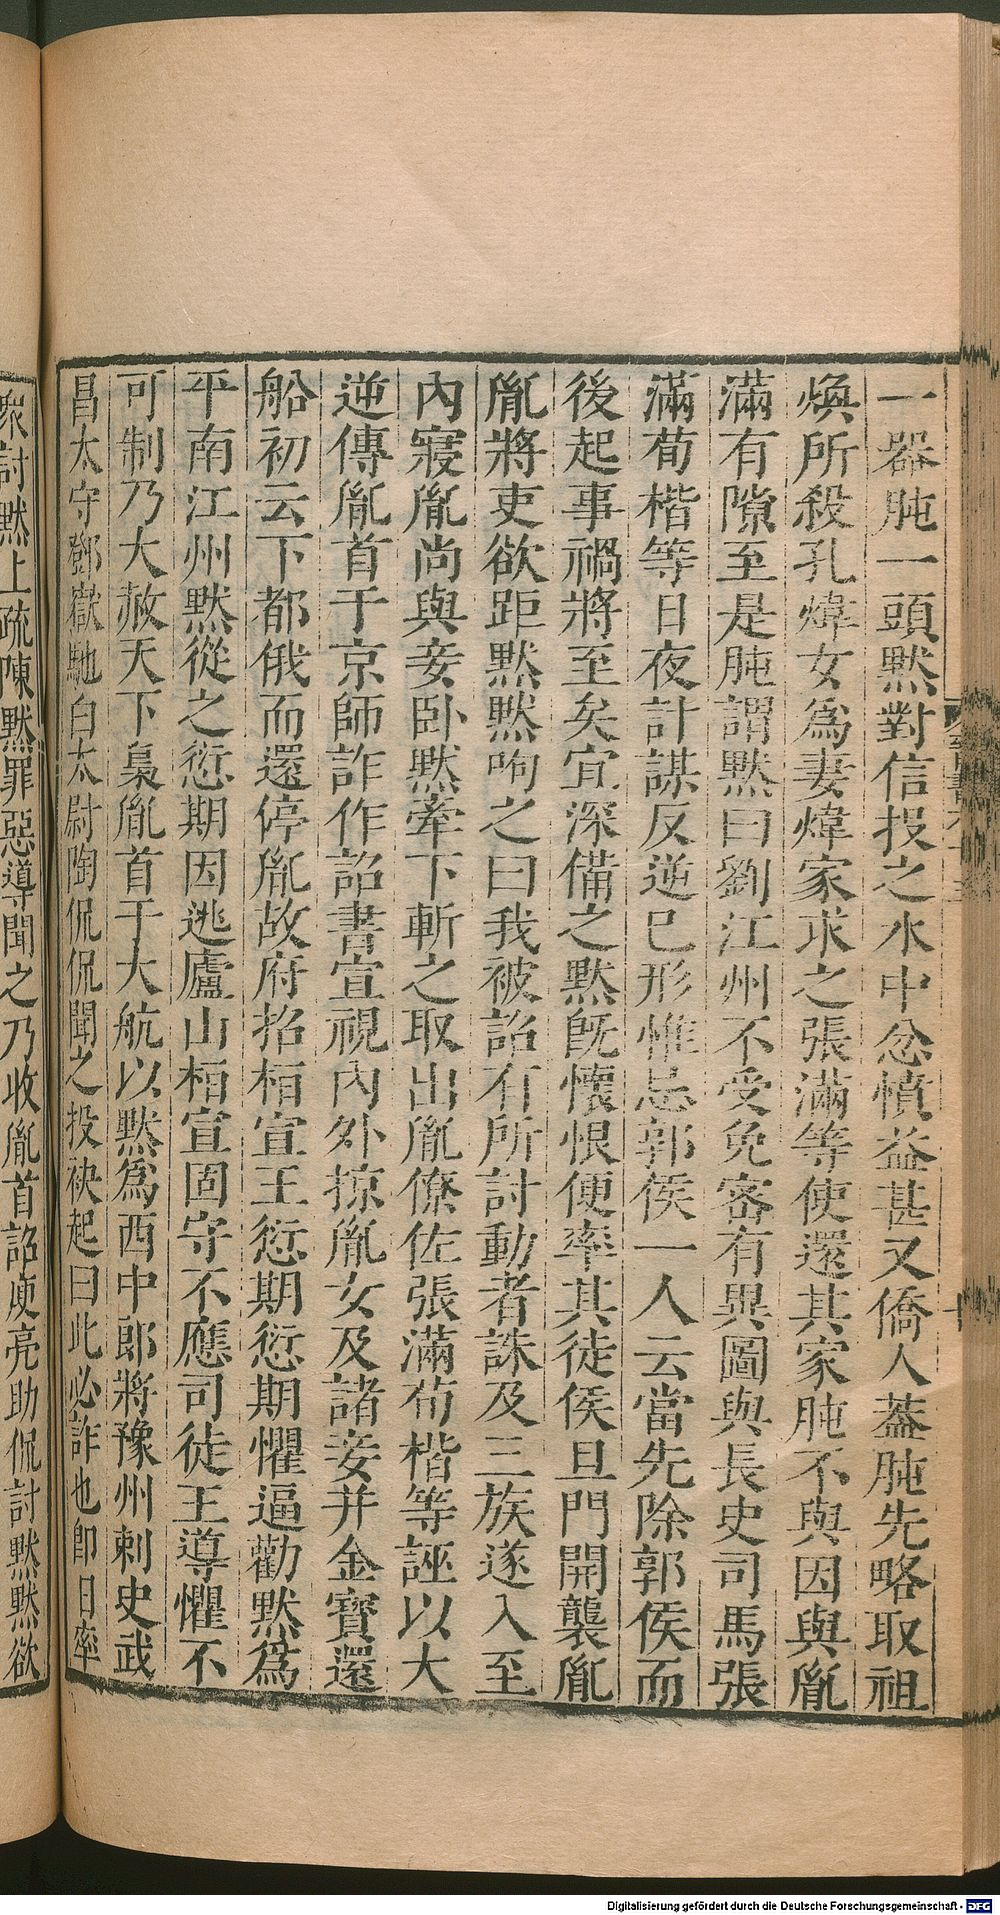 一器肫一頭默對信投之水中忿憤益甚又僑人蓋肫先略取祖
煥所殺孔煒女爲妻煒家求之張滿等使還其家肫不與因與胤
滿有隙至是肫謂默曰劉江州不受免密有異圖與長史司馬張
滿荀楷等日夜計謀反逆已形惟忌郭侯一人云當先除郭侯而
後起事禍將至矣宜深備之默旣懷恨便率其徒侯旦門開襲胤
胤將吏欲距默默呴之曰我被詔有所討動者誅及三族遂入至
內寢胤尚與妾卧默牽下斬之取出胤僚佐張滿荀楷等誣以大
逆傳胤首于京師詐作詔書宣視內外掠胤女及諸妾并金寶還
船初云下都俄而還停胤故府招栢宣王愆期愆期懼逼勸默爲
平南江州默從之愆期因逃廬山栢宣固守不應司徒王導懼不
可制乃大赦天下梟胤首于大航以默爲西中郎將豫州刺史武
昌太守鄧嶽馳白太尉陶侃侃聞之投袂起曰此必詐也卽日率
衆討默上疏陳默罪惡導聞之乃收胤首詔庾亮助侃討默默欲
Digitalisierung gefördert durch die Deutsche Forschungsgemeinschaft - DFG